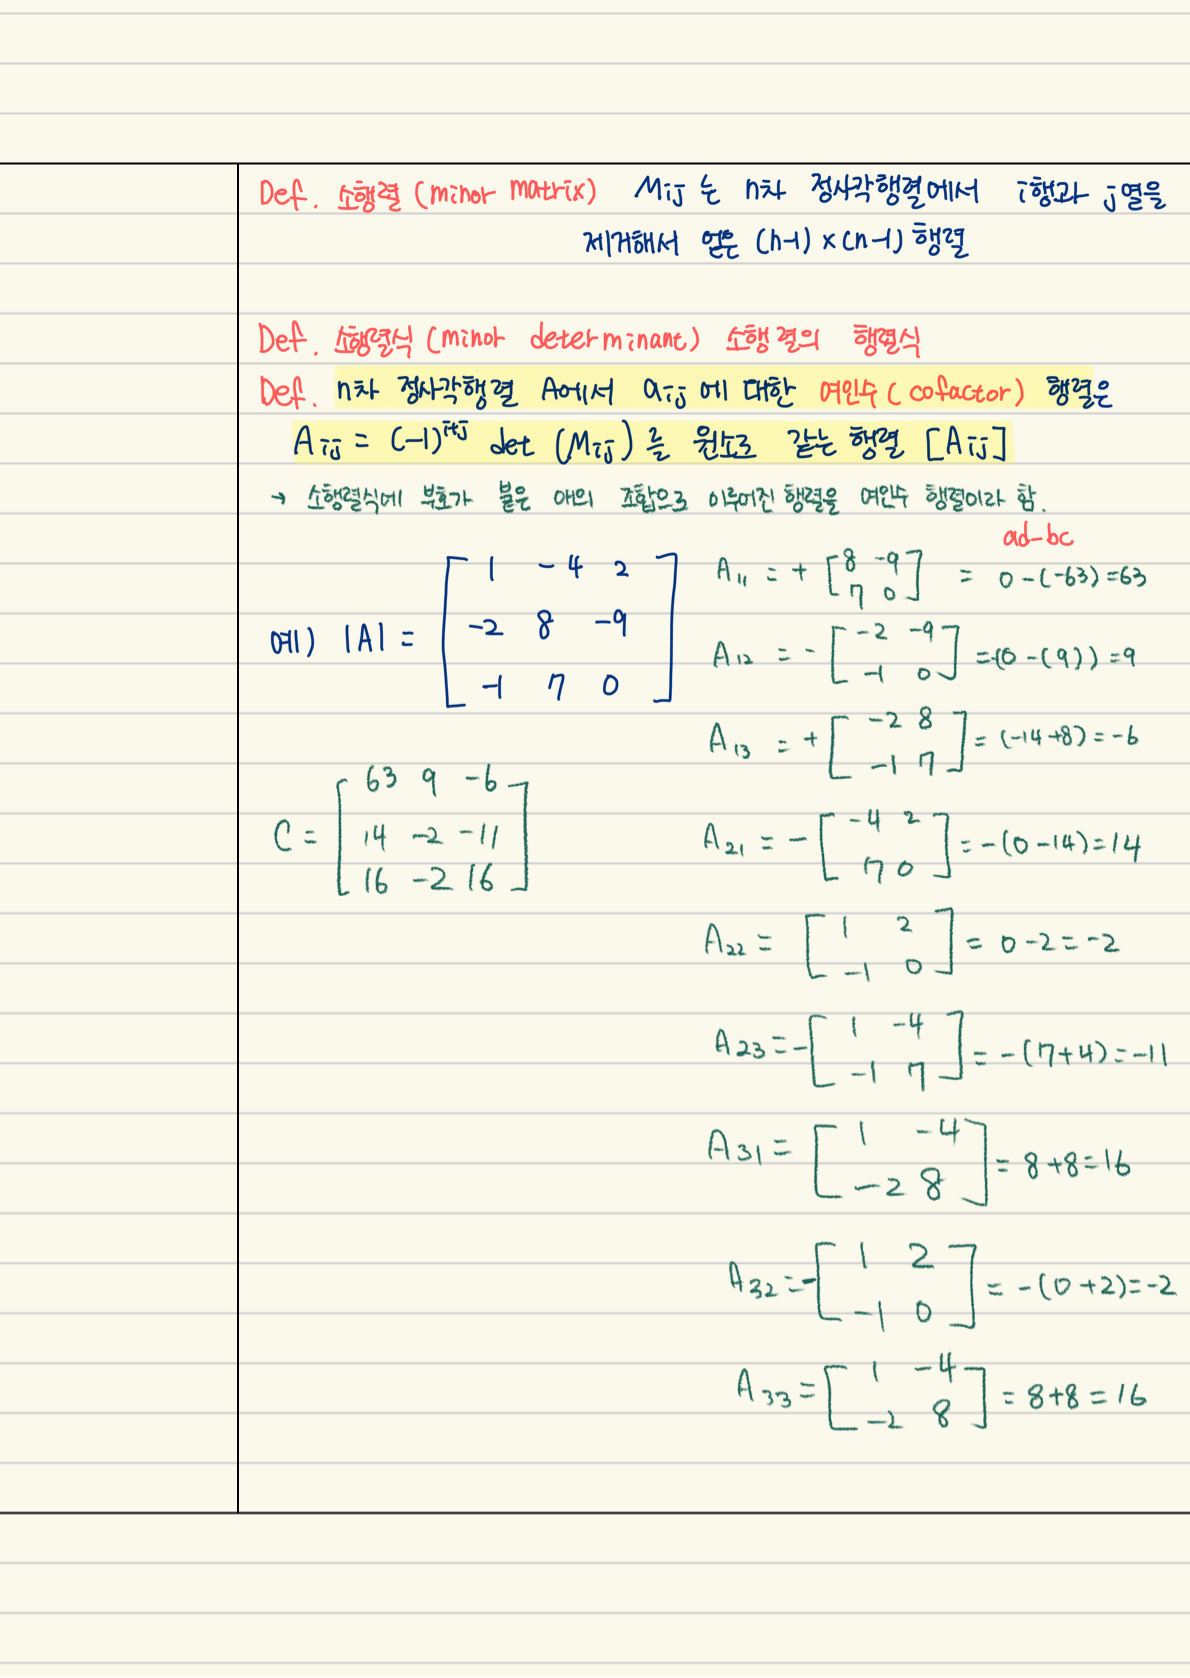 Def. 소행렬 (minor matrix) Mij 는 n차 정사각행렬에서 i행과 j열을
제거해서 얻은 (n-1)×(n-1) 행렬
Def. 소행렬식 (minor determinant) 소행렬의 행렬식
Def. n차 정사각행렬 A에서 aij에 대한 여인수(cofactor) 행렬은
Aij = (-1)^i+j det (Mij)를 원소로 갖는 행렬 [Aij]
→ 소행렬식에 부호가 붙은 애의 조합으로 이루어진 행렬을 여인수 행렬이라 함.
ad-bc
예) |A| = [1 -4 2
-2 8 -9
-1 7 0]
A11 = + [8 -9
7 0] = 0-(-63)=63
A12 = - [-2 -9
-1 0] =-(0-(9))=9
A13 = + [-2 8
-1 7] = (-14+8)=-6
C = [63 9 -6
14 -2 -11
16 -2 16]
A21 = - [-4 2
7 0] = -(0-14)=14
A22 = [1 2
-1 0] = 0-2=-2
A23 = - [1 -4
-1 7] = -(7+4)=-11
A31 = [1 -4
-2 8] = 8+8=16
A32 = - [1 2
-1 0] = -(0+2)=-2
A33 = [1 -4
-2 8] = 8+8=16